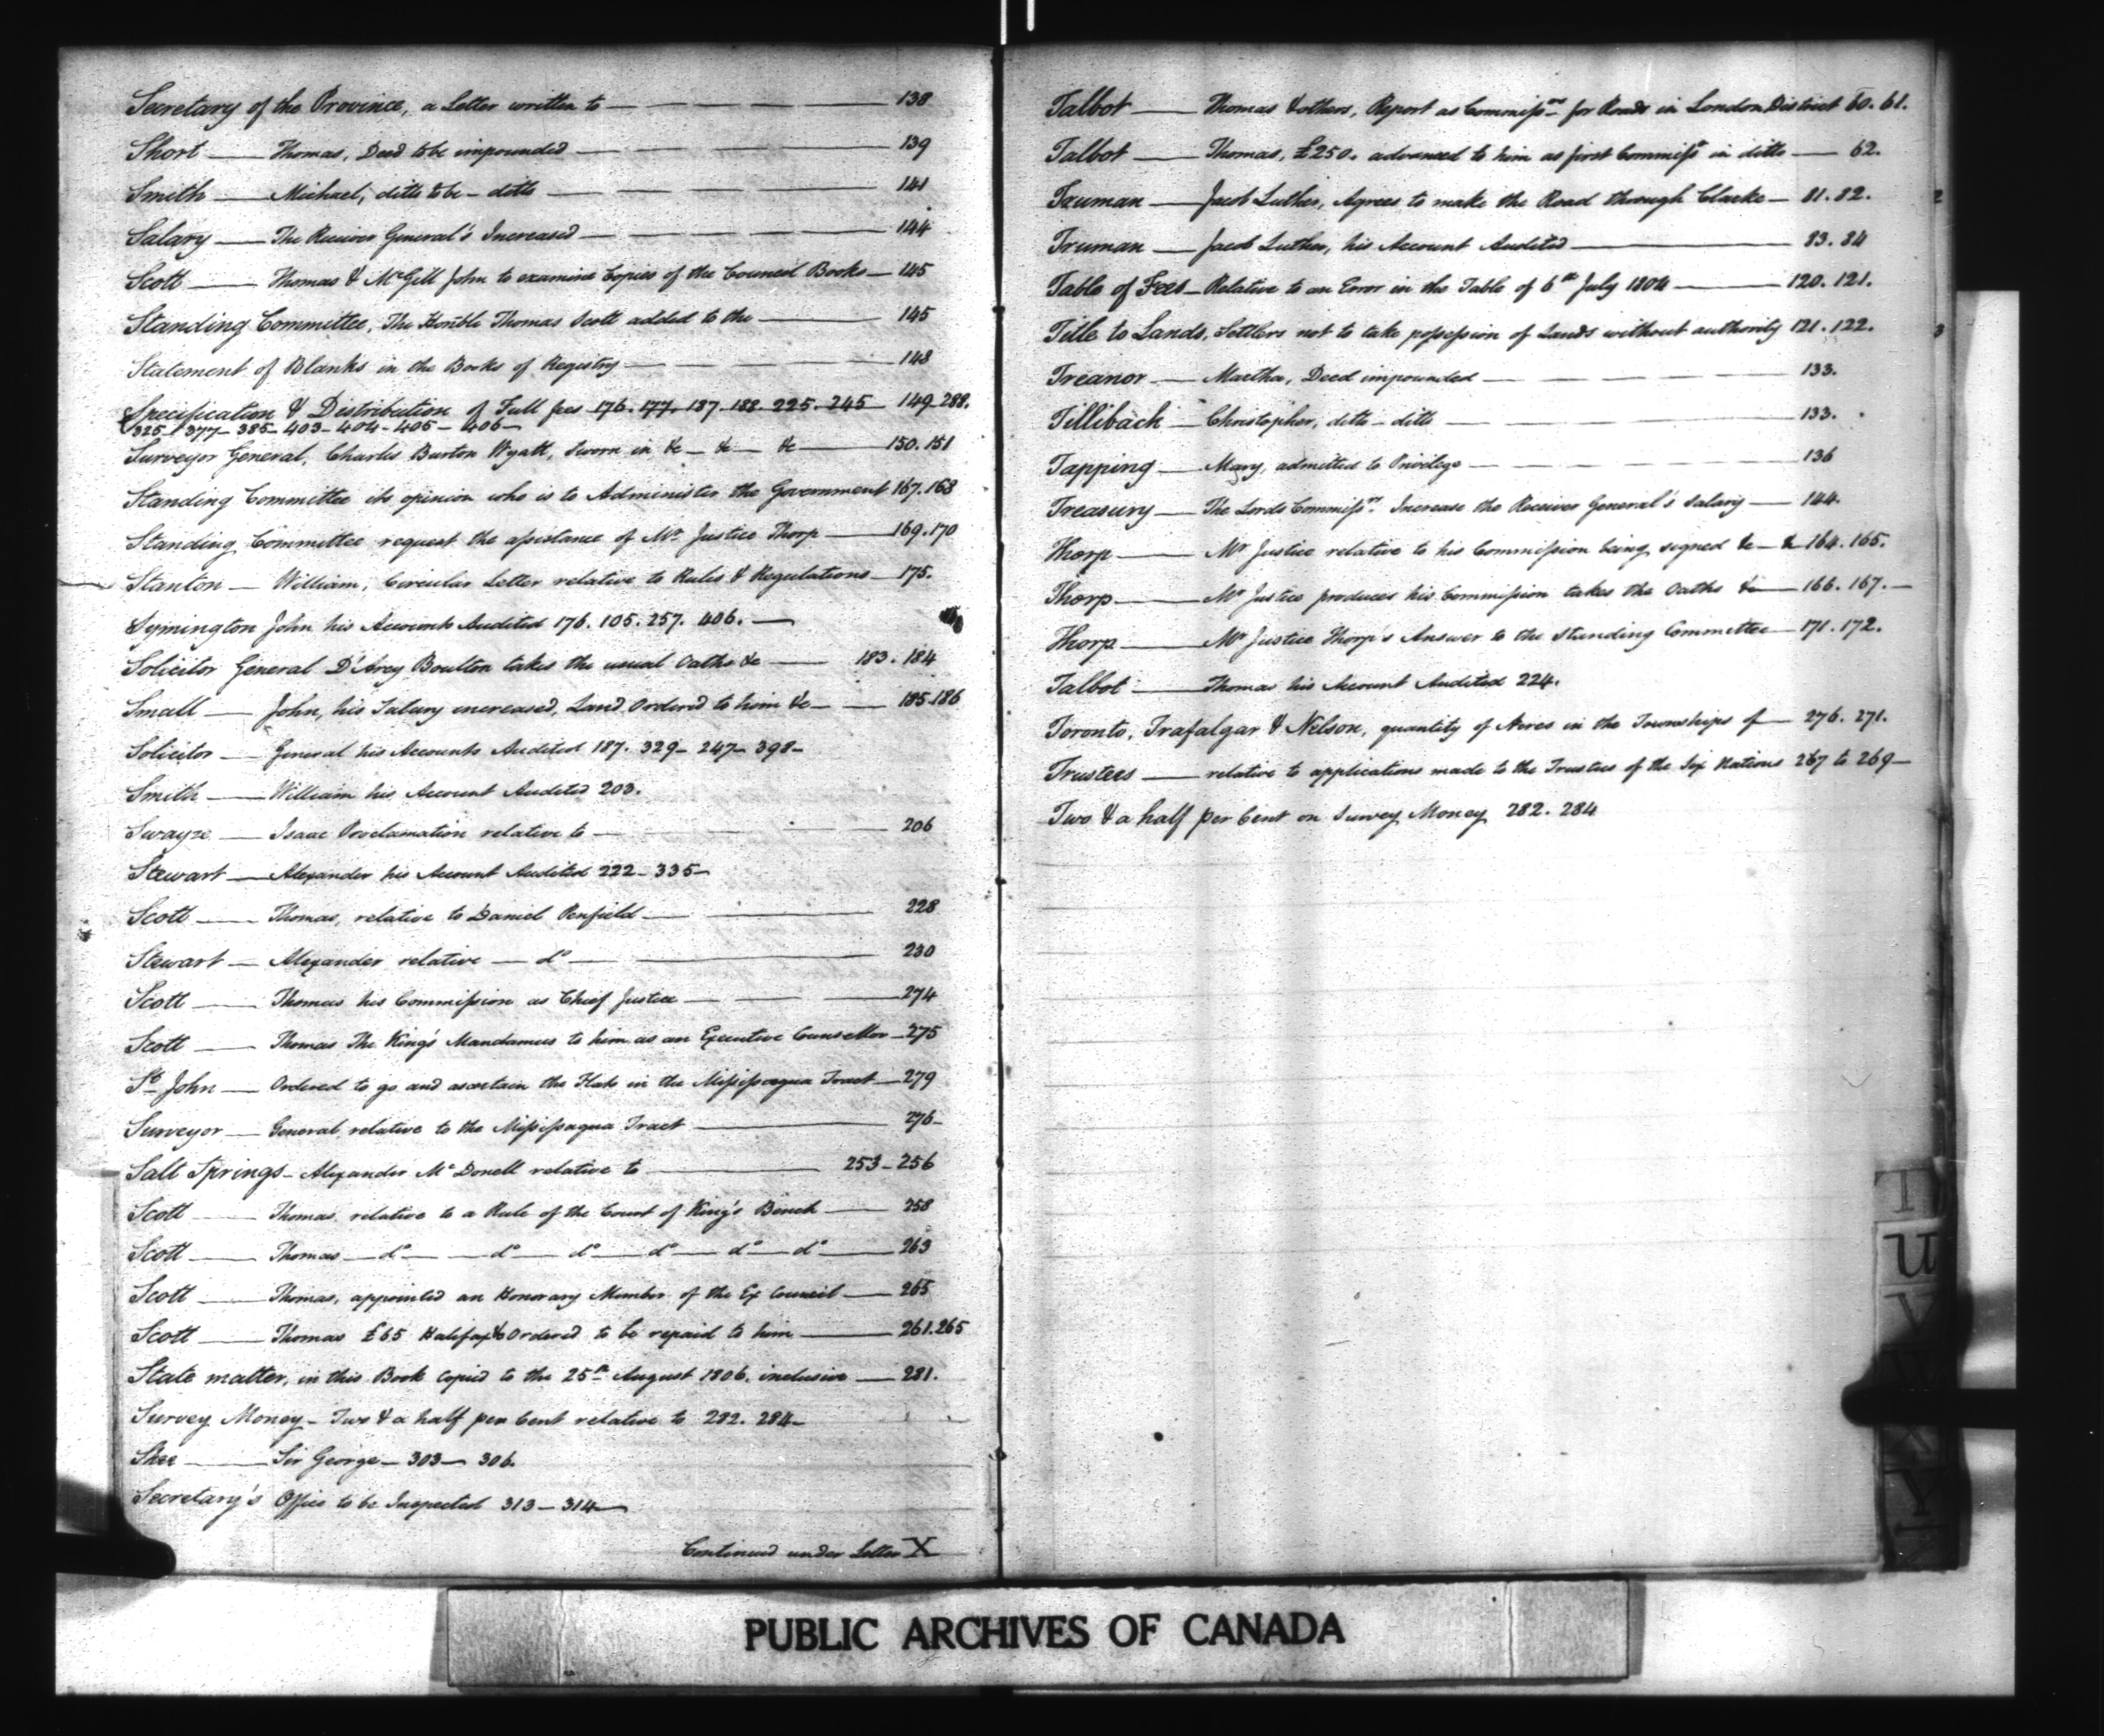 Secretary of the Province, a Letter written to — 138
Short — Thomas, Deed to be impounded — 139
Smith — Michael, ditto to be – ditto — 141
Salary — The Receiver General's Increased — 144
Scott — Thomas & McGill John to examine Copies of the Council Books — 145
Standing Committee, The Honble Thomas Scott added to the — 145
Statement of Blanks in the Books of Registry — 148
Specification & Distribution of Full fees 176. 177. 187. 188. 225. 245 — 149. 288.
325. 377 – 385 – 403 – 404 – 405 – 406 –
Surveyor General, Charles Burton Wyatt, Sworn in &c — &c — &c — 150. 151
Standing Committee its opinion who is to Administer the Government 167. 168
Standing Committee request the assistance of Mr. Justice Thorp — 169. 170
Stanton — William, Circular Letter relative to Rules & Regulations — 175.
Symington John his Accounts Audited 176. 105. 257. 406. —
Solicitor General D'Arcy Boulton takes the usual Oaths &c — 183. 184
Small — John, his Salary increased, Land Ordered to him &c — 185. 186
Solicitor — General his Accounts Audited 187. 329 – 247 – 398 –
Smith — William his Account Audited 203.
Swayze — Isaac Proclamation relative to — 206
Stewart — Alexander his Account Audited 222 – 335 –
Scott — Thomas, relative to Daniel Penfield — 228
Stewart — Alexander relative — do — 230
Scott — Thomas his Commission as Chief Justice — 274
Scott — Thomas The King's Mandamus to him as an Executive Counsellor — 275
St. John — Ordered to go and ascertain the Flats in the Missisagua Tract — 279
Surveyor — General relative to the Missisagua Tract — 276 –
Salt Springs — Alexander McDonell relative to — 253 – 256
Scott — Thomas, relative to a Rule of the Court of King's Bench — 258
Scott — Thomas — do — do — do — do — do — do — 263
Scott — Thomas, appointed an Honorary Member of the Ex Council — 265
Scott — Thomas £65 Halifax &c Ordered to be repaid to him — 261. 265
State matter, in this Book copied to the 25th August 1806. inclusive — 281.
Survey Money – Two & a half per Cent relative to 282. 284 –
Shee — Sir George — 303 — 306.
Secretary's Office to be Inspected 313 – 314 —
Continued under Letter X
Talbot — Thomas & others, Report as Commissrs for Roads in London District 60. 61.
Talbot — Thomas, £250. advanced to him as first Commissr in ditto — 62.
Truman — Jacob Luther, Agrees to make the Road through Clarke — 81. 82.
Truman — Jacob Luther, his Account Audited — 83. 84
Table of Fees — Relative to an Error in the Table of 6th July 1804 — 120. 121.
Title to Lands, Settlers not to take possession of Lands without authority 121. 122.
Treanor — Martha, Deed impounded — 133.
Tillibach — Christopher, ditto – ditto — 133.
Tapping — Mary, admitted to Privilege — 136
Treasury — The Lords Commissrs. Increase the Receiver General's Salary — 144.
Thorp — Mr Justice relative to his Commission being signed &c — & 164. 165.
Thorp — Mr Justice produces his Commission takes the Oaths &c — 166. 167. —
Thorp — Mr Justice Thorp's Answer to the Standing Committee — 171. 172.
Talbot — Thomas his Account Audited 224.
Toronto, Trafalgar & Nelson, quantity of Acres in the Townships of — 276. 271.
Trustees — relative to applications made to the Trustees of the Six Nations 267 to 269 —
Two & a half per Cent on Survey Money 282. 284
T
U
V
W
X
Y
PUBLIC ARCHIVES OF CANADA